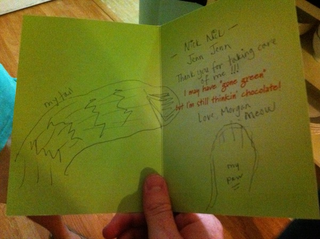 my tail
- Nik Nik -
- Jenn Jenn
Thank you for taking care
of me !!!
I may have "gone green"
but I'm still thinkin' chocolate!
Love, Morgan
Meow
my
paw